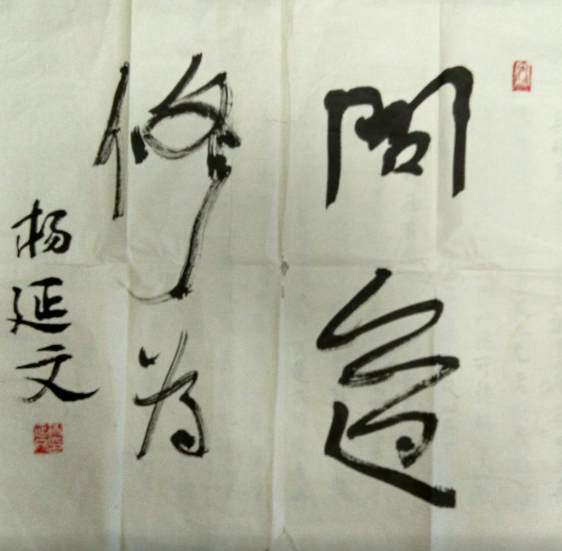 问道
修为
杨延文